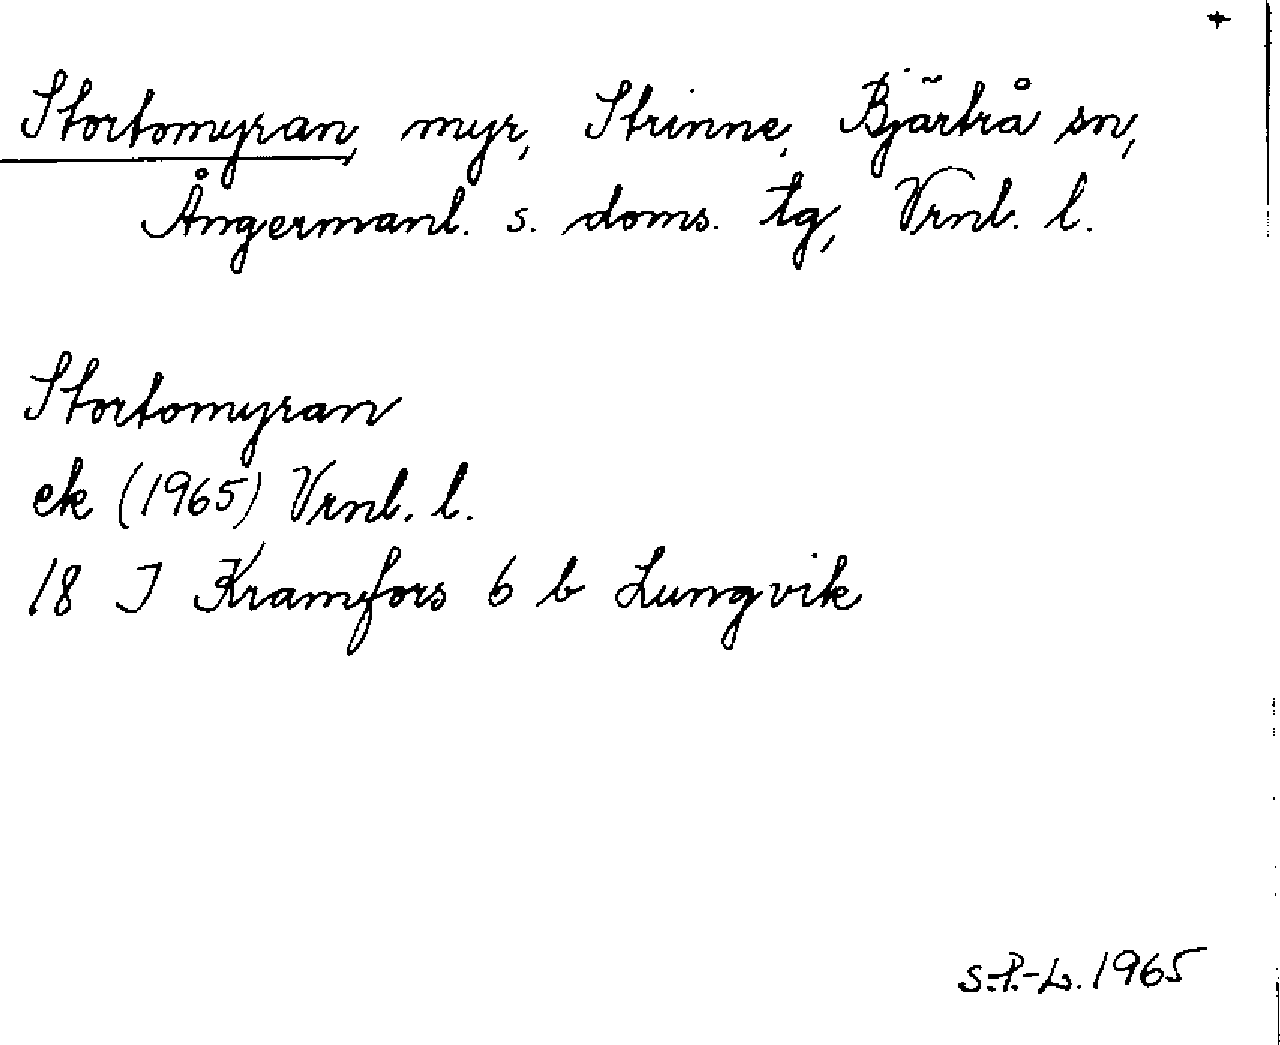 +
Stortomyran, myr, Strinne, Bjärtrå sn,
Ångermanl. s. doms. tg, Vrnl. l.
Stortomyran
ek (1965) Vrnl. l.
18 I Kramfors 6 b Lungvik
S.P.-L. 1965